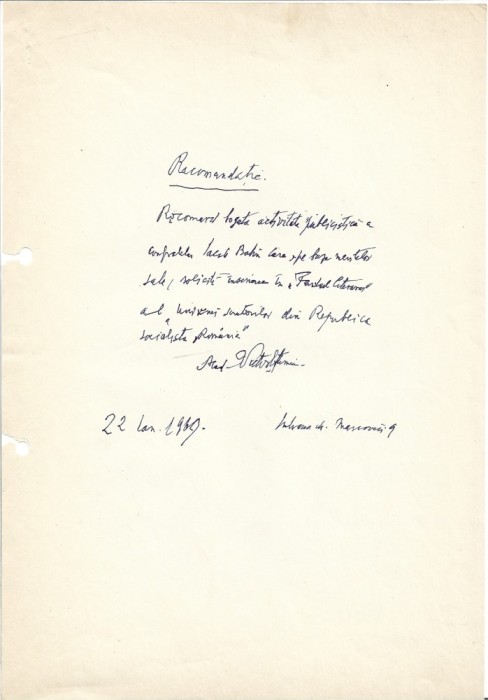 Recomandație.
Recomand bogata activitate publicistică a
confratelui Iacob Bahn care, pe baza meritelor
sale, solicită înscrierea în „Fondul Literar"
al Uniunii scriitorilor din Republica
socialista „România"
Acad. Victor Eftimiu
22 Ian. 1969.